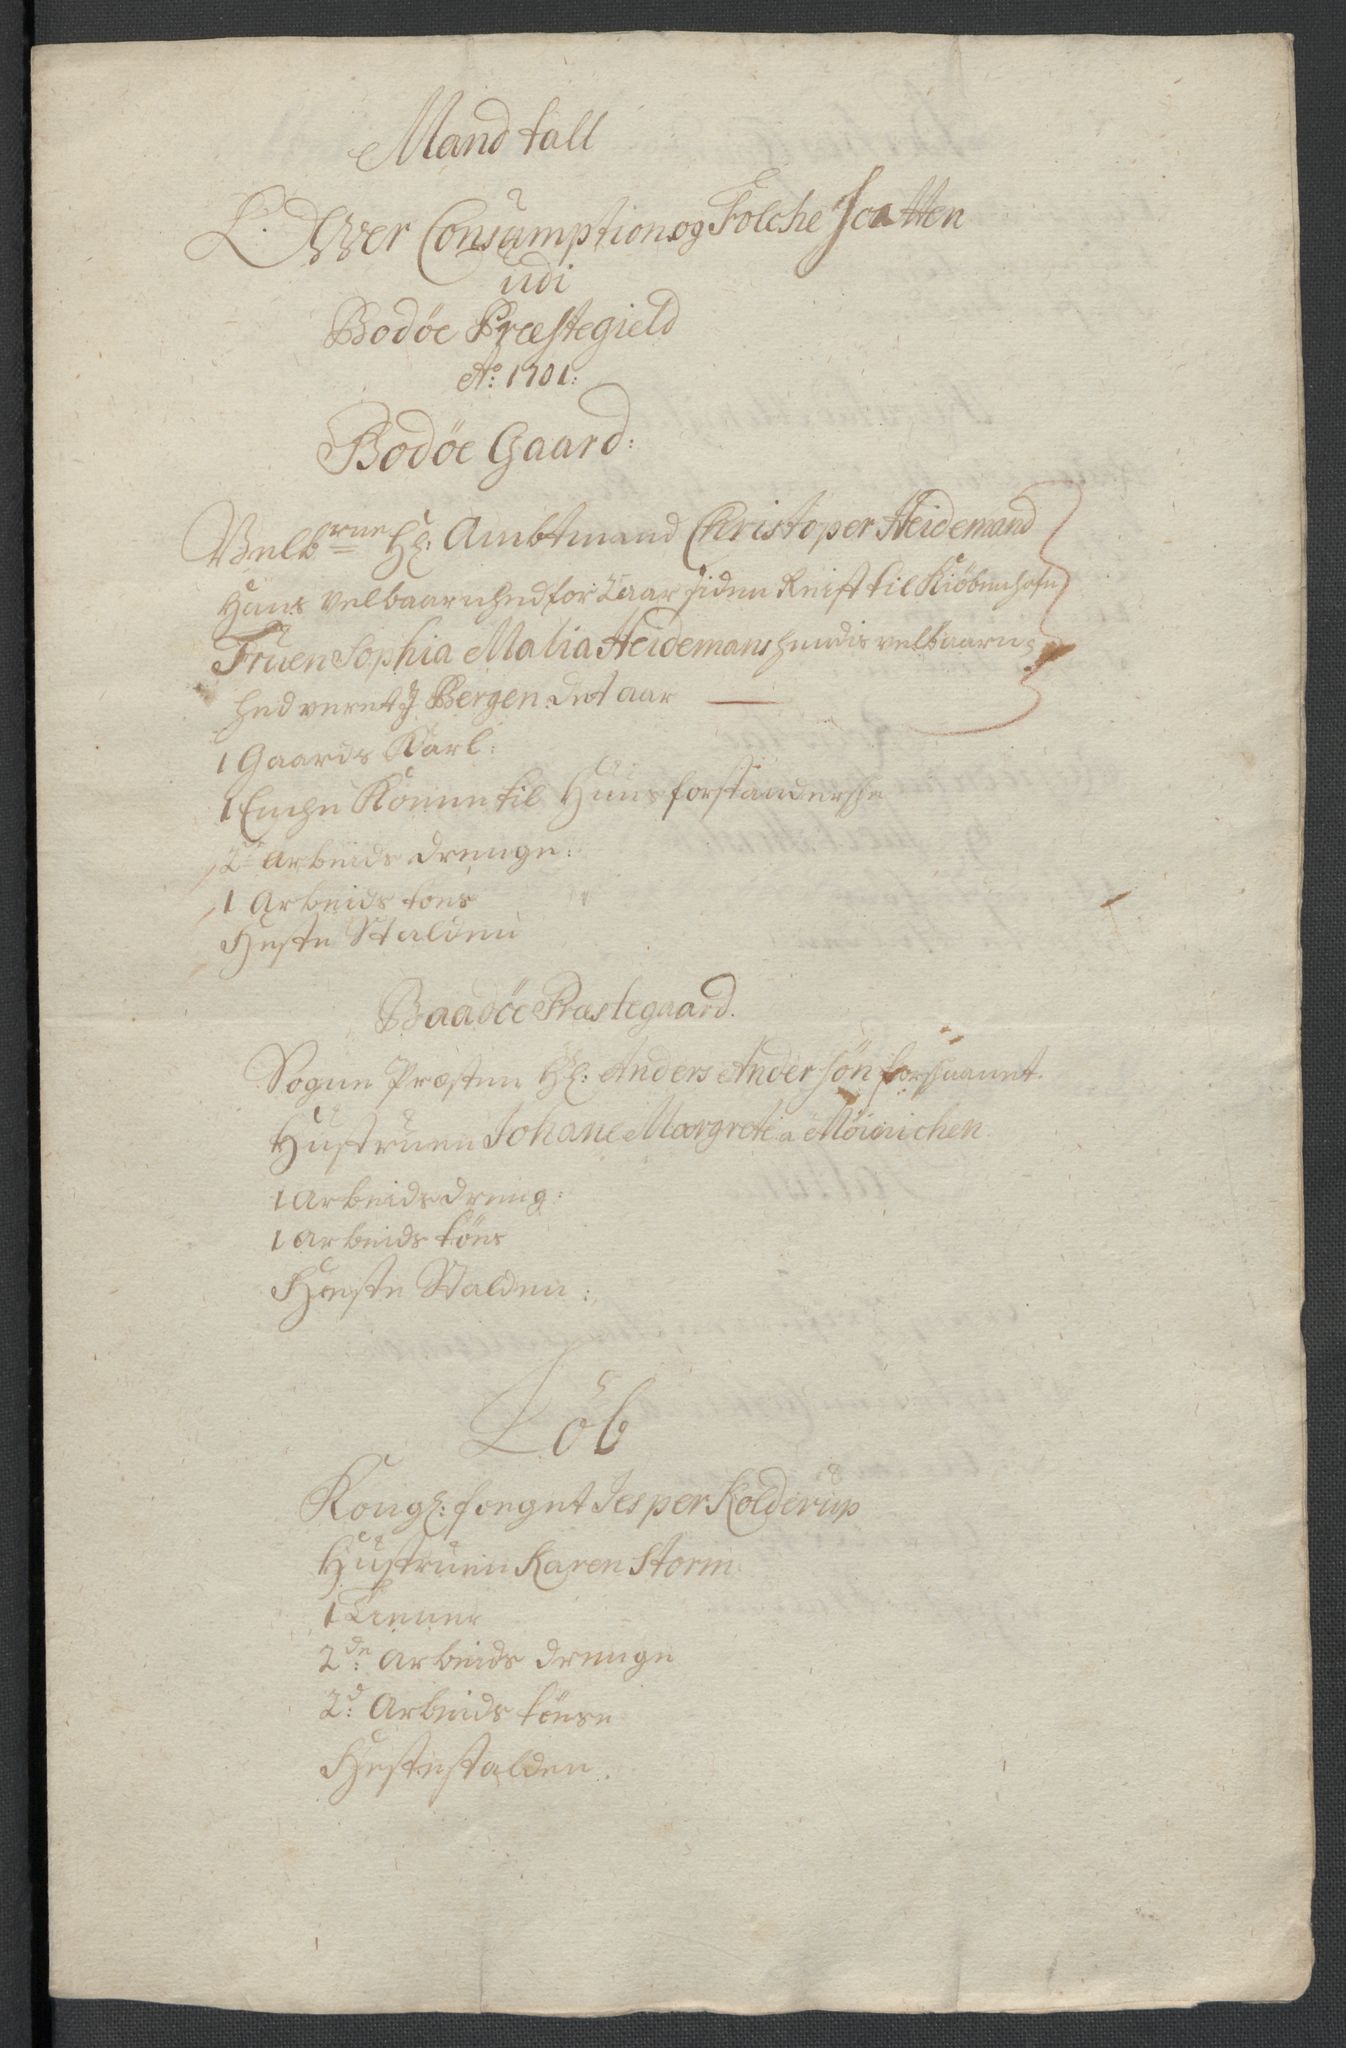 Mandtall
Ofwer Consumption og Folche Skatten
udi
Bodøe Præstegield
Ao: 1701:
Bodøe Gaard:
Velbrne Hr: Ambtmand Christoper Heidemand
Hans velbaarnhed for 2 aar siden Reist til Kiøbenhafn
Fruen Sophia Malia Heidemans hendis velbaarn
hed veret J Bergen det aar
1 Gaards Karl:
1 Enche Konne til Huusforstandersche
2de arbeids drenge:
1 Arbeids tøes
Heste Stalden
Baadøe Præstegaard.
Sogne Præsten Hr: Anders Andersøn forschaanet.
Hustruen Johane Margrete a Möinichen
1 Arbeidsdreng:
1 arbeids tøes
Heste Stalden:
Løb
Kongl: foeget Jesper Kolderup
Hustruen Karen Storm
1 Tiener
2de: Arbeids drenge
2d: Arbeids tøese
Hestestalden.